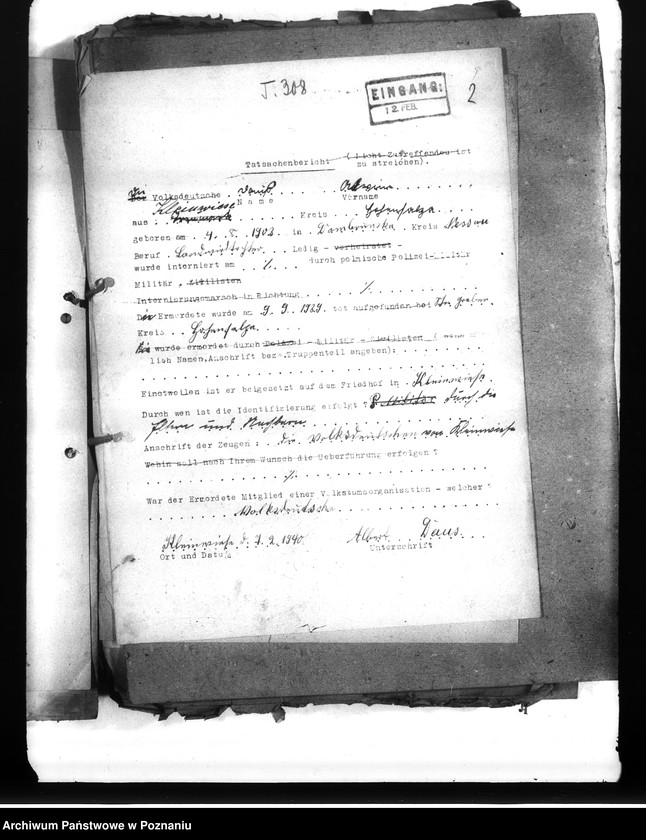 J. 308
EINGANG:
12. FEB.
2
Tatsachenbericht (Nicht Zutreffendes ist
zu streichen).
Die Volksdeutsche Daus
Name Vorname
aus: Kleinwiese Kreis Hohensalza
geboren am 9. 1902 in Kreis Nessau
Beruf Landwirtstochter Ledig - verheiratet -
wurde interniert am ./. durch polnische Polizei-Militär
Militär, Zivilisten
Internierungsmarsch in Richtung ./.
Die Ermordete wurde am 9.9.1939 tot aufgefunden bei
Kreis Hohensalza
Sie wurde ermordet durch Polizei - Militär - Zivilisten (
lich Namen, Anschrift bezw. Truppenteil angeben):
Einstweilen ist er beigesetzt auf dem Friedhof in Kleinwiese
Durch wen ist die Identifizierung erfolgt? durch die
Eltern und Nachbarn
Anschrift der Zeugen: die Volksdeutschen von Kleinwiese
Wohin soll nach Ihrem Wunsch die Ueberführung erfolgen?
./.
War der Ermordete Mitglied einer Volkstumsorganisation - welcher?
Volksdeutsche
Kleinwiese d. 7.2.1940. Albert Daus
Ort und Datum Unterschrift
Archiwum Państwowe w Poznaniu